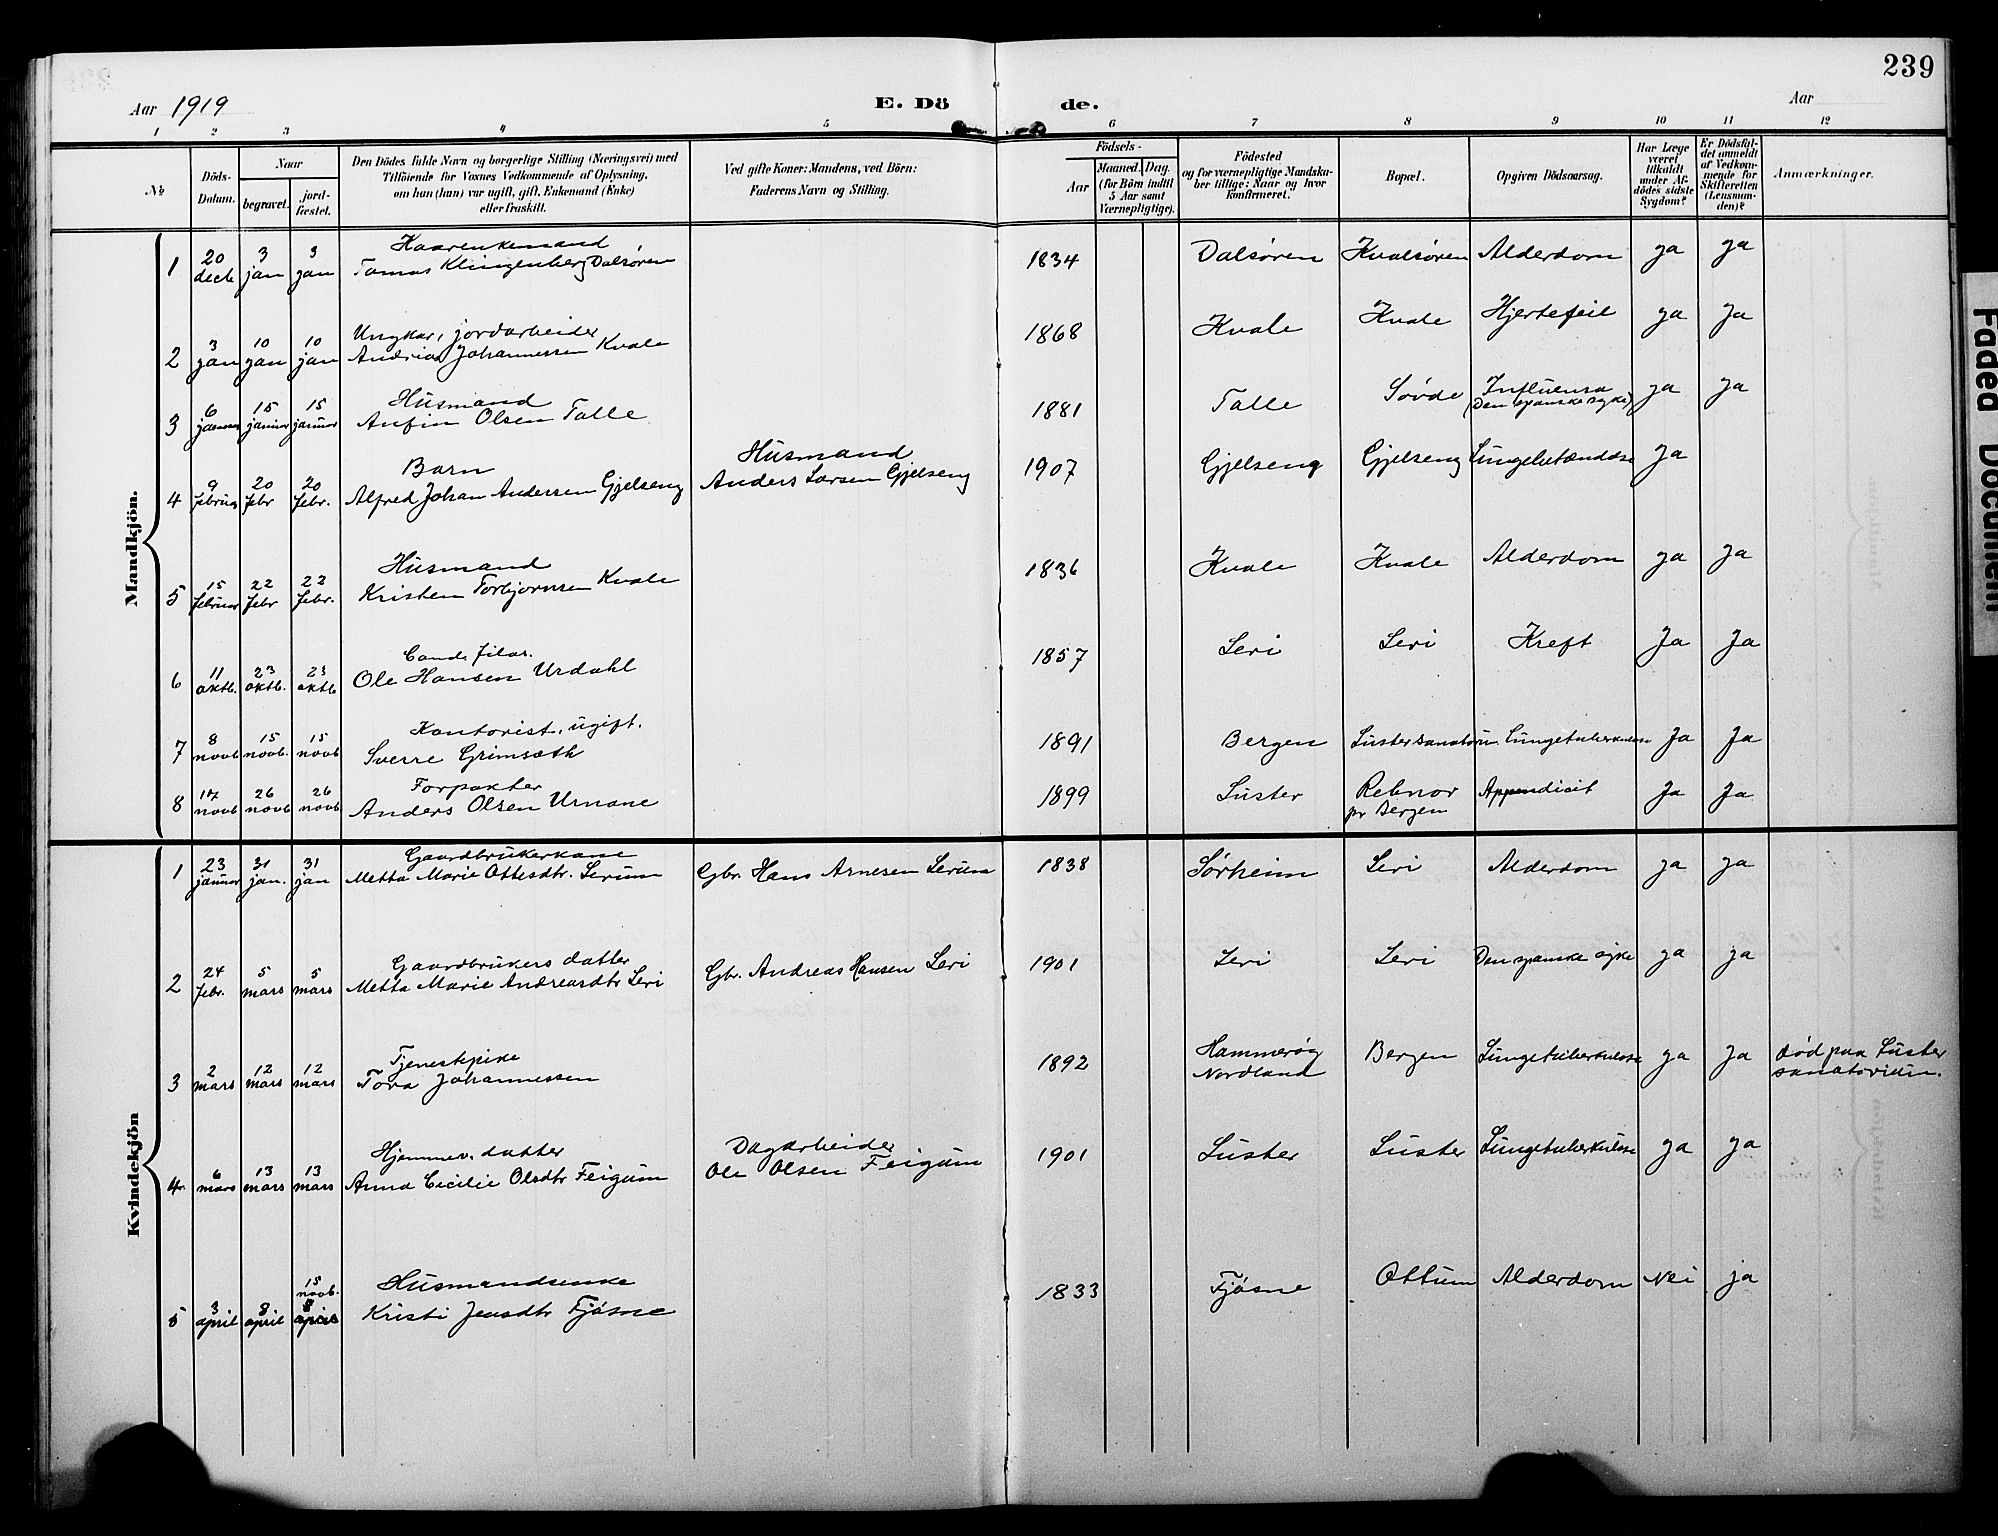 239
Aar 1919
E. Dö de.
Aar
1 2 3 4 5 6 7 8 9 10 11 12
No
Döds-Datum.
Naar
begravet.
jord-fæstet.
Den Dödes fulde Navn og borgerlige Stilling (Næringsvei) med
Tilföiende for Voxnes Vedkommende af Oplysning,
om han (hun) var ugift, gift, Enkemand (Enke)
eller fraskilt.
Ved gifte Koner: Mandens, ved Börn:
Faderens Navn og Stilling.
Födsels-
Aar
Maaned. Dag.
(for Börn indtil
5 Aar samt
Værnepligtige).
Födested
og for værnepligtige Mandska-
ber tillige: Naar og hvor
konfirmeret.
Bopæl.
Opgiven Dödsaarsag.
Har Læge
været
tilkaldt
under Af-
dödes sidste
Sygdom?
Er Dödsfal-
det anmeldt
af Vedkom-
mende for
Skifteretten
(Lensman-
den)?
Anmærkninger.
Mandkjön.
Kaarenkemand
1 20 decb 3 jan 3 jan Tomas Klingenberg Dalsøren 1834 Dalsøren Kvalsøren Alderdom ja ja
Ungkar, jordarbeider
2 3 jan 10 jan 10 jan Andrias Johannessen Kvale 1868 Kvale Kvale Hjertefeil ja ja
Husmand
3 6 januar 15 januar 15 januar Anfin Olsen Talle 1881 Talle Søvde Influensa (Den spanske syke) ja ja
Barn Husmand
4 9 februar 20 febr 20 febr. Alfred Johan Andersen Gjelseng Anders Larsen Gjelseng 1907 Gjelseng Gjelseng Lungebetændelse Ja
Husmand
5 15 februar 22 febr 22 febr. Kristen Torbjørnsen Kvale 1836 Kvale Kvale Alderdom ja ja
Cand. filos.
6 11 oktb. 23 oktb. 23 oktb Ole Hansen Urdahl 1857 Leri Leri Kreft Ja Ja
Kontorist, ugift.
7 8 novb 15 novb. 15 novb Sverre Grimsæth 1891 Bergen Lustersanatorium Lungetuberkulose Ja Ja
Forpakter
8 17 novb 26 novb 26 novb Anders Olsen Urnane 1899 Luster pr Bergen Appendicit Ja Ja
Kvindekjön
Gaardbrukerkone
1 23 januar 31 jan. 31 jan Metta Marie Ottesdtr. Lerum Gbr. Hans Arnesen Lerum 1838 Sørheim Leri Alderdom ja ja
Gaardbrukers datter
2 24 febr. 5 mars 5 mars Metta Marie Andreasdtr Leri Gbr. Andreas Hansen Leri 1901 Leri Leri Den spanske syke ja ja
Tjenestepike
3 2 mars 12 mars 12 mars Tora Johannessen 1892 Hammerøy Nordland Bergen Lungetuberkulose ja ja Død paa Luster sanatorium.
Hjemmev. datter Dagarbeider
4. 6 mars 13 mars 13 mars Anna Cicilie Olsdtr Feigum Ole Olsen Feigum 1901 Luster Luster Lungetuberkulose ja ja
Husmandsenke
5 3 april 8 april 15 novb. 8 april Kristi Jensdtr Fjøsne 1833 Fjøsne Ottum Alderdom Nei ja
Faded Document